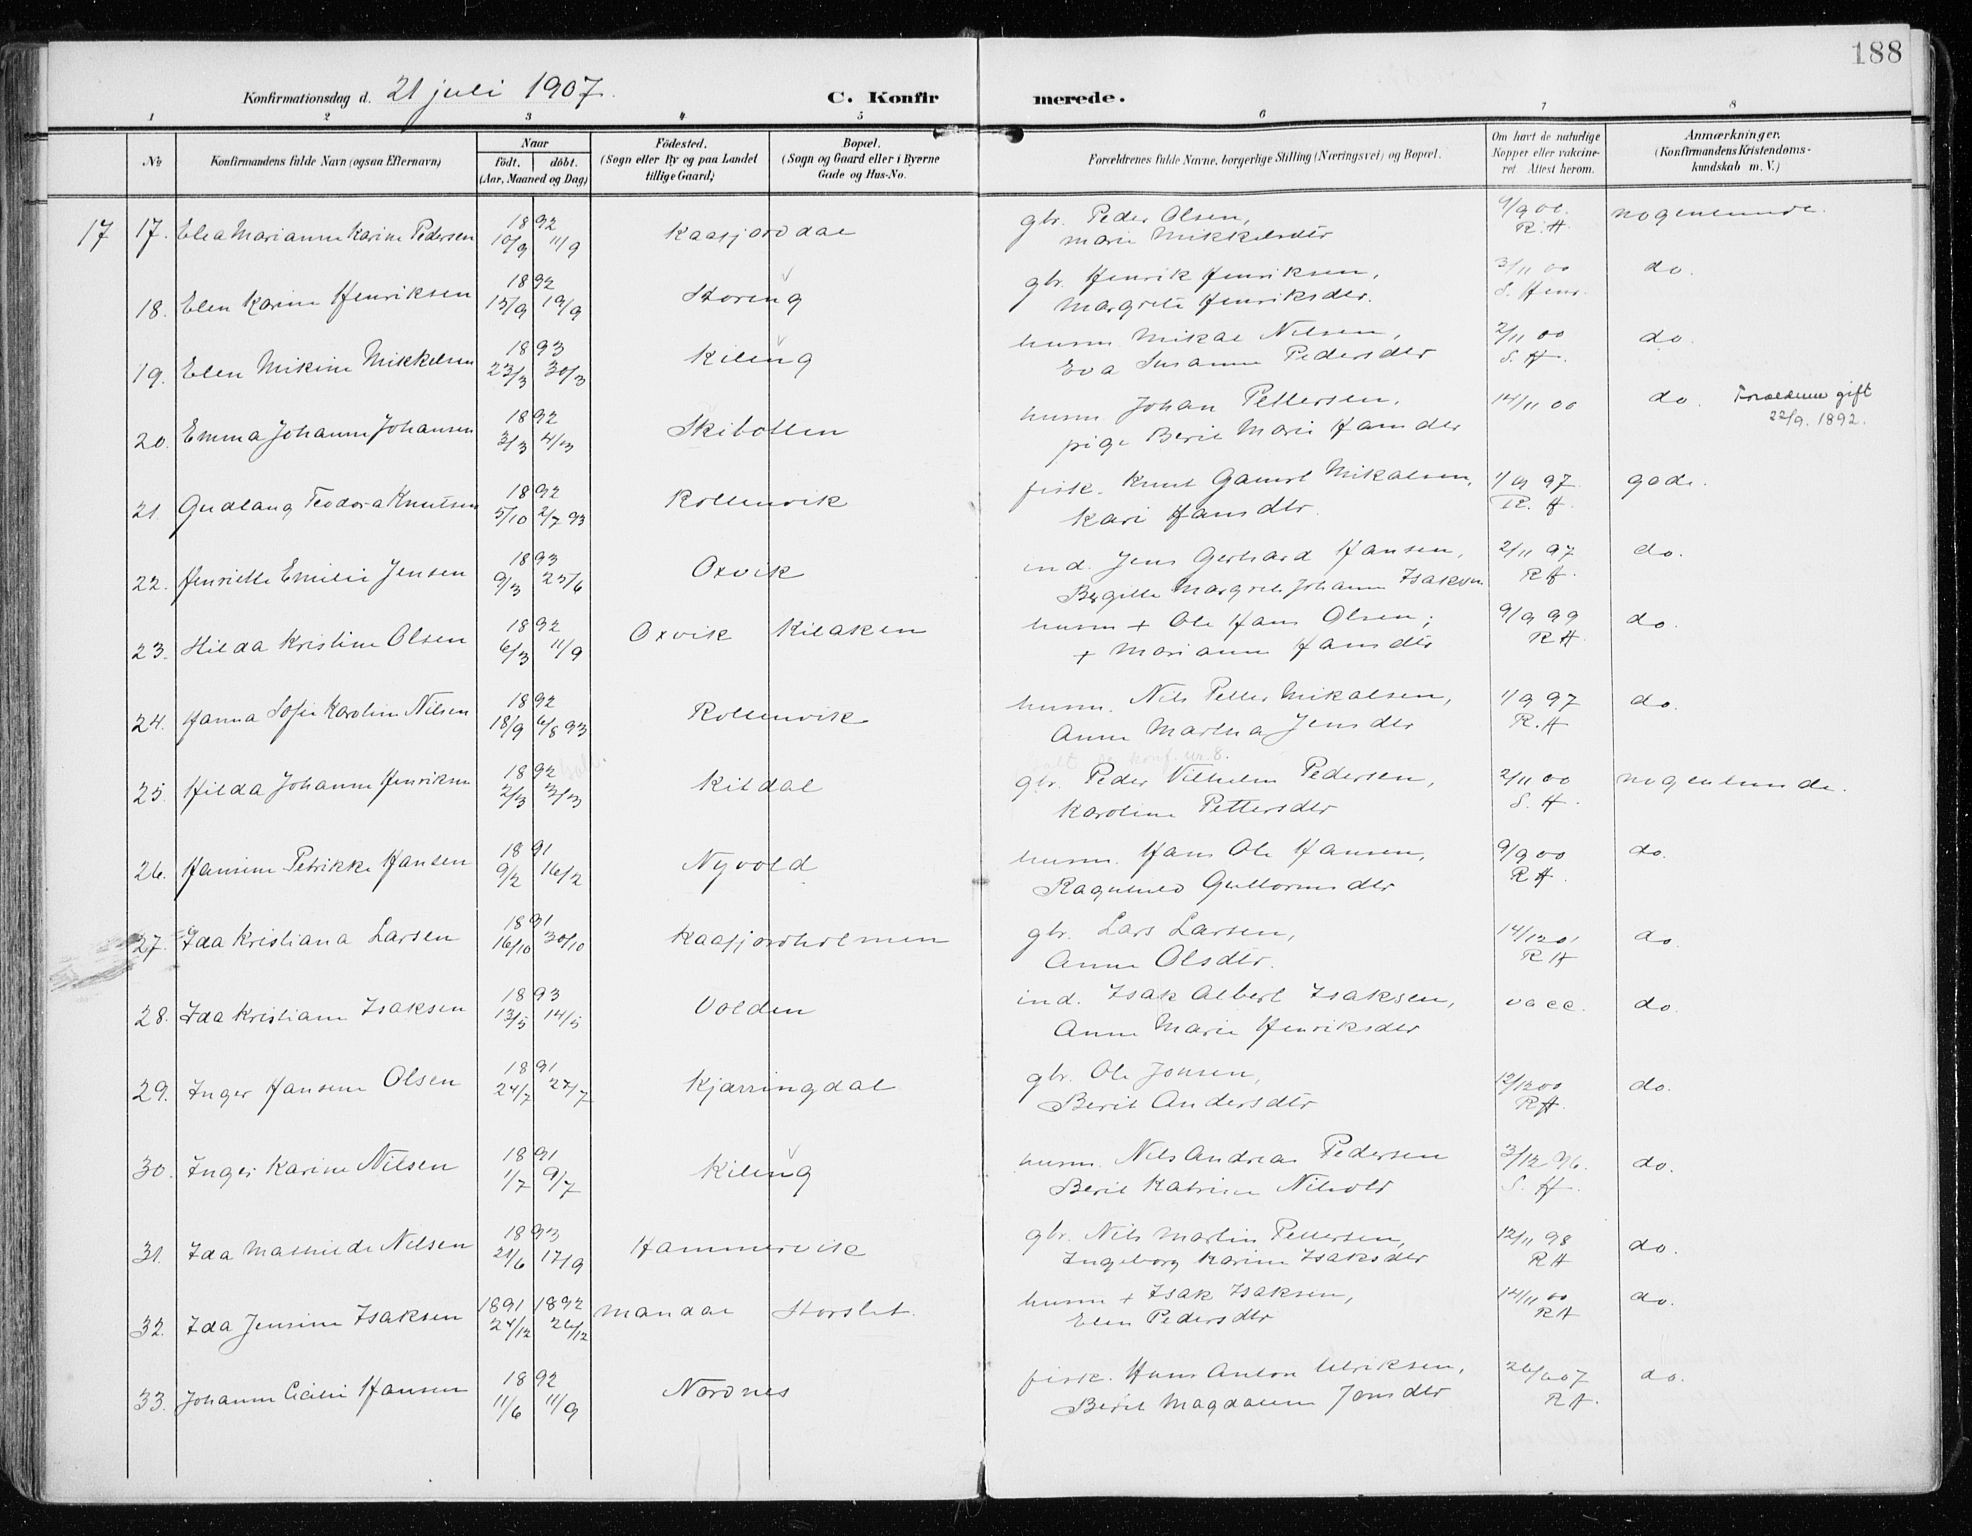 188
Konfirmationsdag d. 21 juli 1907.
C. Konfirmerede.
1 2 3 4 5 6 7 8
No. Konfirmandens fulde Navn (ogsaa Efternavn) Naar født. døbt. (Aar, Maaned og Dag) Fødested. (Sogn eller By og paa Landet tillige Gaard) Bopæl. (Sogn og Gaard eller i Byerne Gade og Hus-No. Forældrenes fulde Navne, borgerlige Stilling (Næringsvei) og Bopæl. Om havt de naturlige Kopper eller vakcineret. Attest herom. Anmærkninger. (Konfirmandens Kristendomskundskab m. V.)
17 17. Elea Marianne Karine Pedersen 1892 10/9 11/9 Kaafjorddal gbr. Peder Olsen, 9/9 00. nogenlunde.
Marie Mikkelsdtr R. H
18. Elen Karine Henriksen 1892 15/9 19/9 Storeng gbr. Henrik Henriksen, 3/11 00 do.
Margrete Henriksdtr. S. Henr.
19. Elen Mikine Mikkelsen 1893 23/3 30/3 Kileng husm. Mikal Nilsen, 2/11 00 do.
Eva Susanne Pedersdtr S. H.
20. Emma Johanne Johansen 1892 3/3 4/3 Skibotten husm. Johan Pettersen, 14/11 00 do. Forældrene gift
pige Berit Marie Hansdtr 22/9. 1892.
21. Gudlaug Teodora Knutsen 1892 5/10 2/7 93 Rottenvik fisk. Knut Gamst Mikalsen, 1/9 97. gode.
Kari Hansdtr. R. H.
22. Henriette Emilie Jensen 1893 9/3 25/6 Oxvik ind. Jens Gerhard Hansen, 2/11 97 do.
Bergitte Margrete Johanne Isaksen R H.
23. Hilda Kristine Olsen 1892 6/3 11/9 Oxvik Kilaken husm + Ole Hans Olsen; 9/9 99 do.
+ Marianne Hansdtr R H
24. Hanna Sofie Karoline Nilsen 1892 18/9 6/8 93 Rottenvik husm. Nils Petter Mikalsen, 1/9 97 do.
Anne Martha Jensdtr R. H
konf. nr. 8.
25. Hilda Johanne Henriksen 1892 2/3 3/3 Kildal gbr. Peder Vilhelm Pedersen, 2/11 00 nogenlunde.
Karoline Pettersdtr S. H.
26. Hansine Petrikke Hansen 1891 9/2 16/2 Nyvold husm. Hans Ole Hansen, 9/9 00 do.
Ragnhild Guttormsdtr R H.
27. Ida Kristiana Larsen 1891 16/10 30/10 Kaafjordholmen gbr. Lars Larsen, 14/12 01 do.
Anne Olsdtr. R H
28. Ida Kristiane Isaksen 1893 13/5 14/5 Volden ind. Isak Albert Isaksen, vacc. do.
Anne Marie Henriksdtr
29. Inger Hansine Olsen 1891 24/7 27/7 Kjærringdal gbr. Ole Jonsen, 12/12 00 do.
Berit Andersdtr R H.
30. Inger Karine Nilsen 1891 1/7 9/7 Kileng husm. Nils Andreas Pedersen 3/12 96. do.
Berit Katrine S. H.
31. Ida Mathilde Nilsen 1893 21/6 17/9 Hammervik gbr. Nils Martin Pettersen, 12/11 98 do.
Ingeborg Karine Isaksdtr R H
32. Ida Jensine Isaksen 1891 24/12 1892 26/12 Mandal Storslet. husm + Isak Isaksen, 14/11 00 do.
Elen Pedersdtr R H
33. Johanne Cecilie Hansen 1892 11/6 11/9 Nordnes fisk. Hans Anton Ulriksen, 26/6 07 do.
Berit Magdalene Jonsdtr R H.